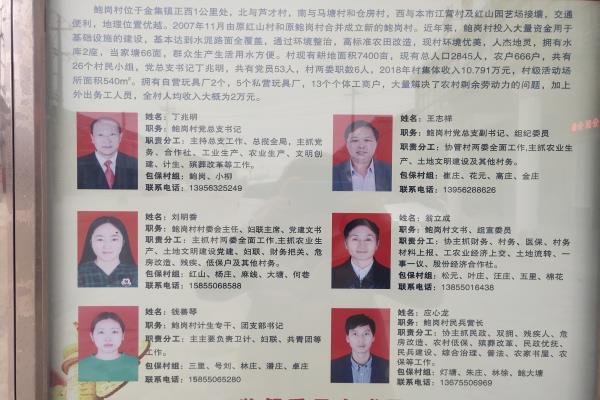 鲍岗村位于金集镇正西1公里处，北与芦才村，南与马塘村和仓房村，西与本市江营村及红山园艺场接壤，交通
便利，地理位置优越。2007年11月由原红山村和原鲍岗村合并成立新的鲍岗村。近年来，鲍岗村投入大量资金用于
基础设施的建设，基本达到水泥路面全覆盖，通过环境整治，高标准农田改造，现村环境优美，人杰地灵，拥有水
库2座，当家塘66面，群众生产生活用水方便。村现有耕地面积7400亩，现有总人口2845人，农户666户，共有
26个村民小组，党总支书记丁兆明，共有党员53人，村两委职数6人，2018年村集体收入10.791万元，村级活动场
所面积540m²。拥有自营玩具厂2个，5个私营玩具厂，13个个体工商户，大量解决了农村剩余劳动力的问题，加上
外出务工人员，全村人均收入大概为2万元。
姓名：丁兆明
职务：鲍岗村党总支书记
职责分工：主持总支工作、总揽全局，主抓党
务、合作社、工业生产、农业生产、文明创
建、计生、殡葬改革等工作。
包保村组：鲍岗、小柳
联系电话：13956325249
姓名：王志祥
职务：鲍岗村党总支副书记、组纪委员
职责分工：协管村两委全面工作,主抓农业生
产、土地文明建设及其他村务。
包保村组：崔庄、花元、高庄、金庄
联系电话：13956288626
姓名：刘明香
职务：鲍岗村村委会主任、妇联主席、党建文书
职责分工：主抓村两委全面工作,主抓农业生
产、土地文明建设党建、妇联、财务把关、危
房改造、残疾、低保户及其他村务。
包保村组：红山、杨庄、麻线、大塘、何巷
联系电话：15855068588
姓名：翁立成
职务：鲍岗村文书、组宣委员
职责分工：协主抓财务、村务、医保、村务
材料上报、工农业经济上交、土地流转、一
事一议、股份经济合作社。
包保村组：松元、叶庄、汪庄、五里、棉花
联系电话：13855016438
姓名：钱善琴
职务：鲍岗村计生专干、团支部书记
职责分工：主主要负责卫计、妇联、共青团等
工作。
包保村组：三里、号刘、林庄、潘庄、卓庄
联系电话：15855065280
姓名：应心龙
职务：鲍岗村民兵营长
职责分工：协主抓民政、双拥、残疾人、危
房改造、农村低保、殡葬改革、民政优抚、
民兵建设、综合治理、普法、农家书屋、农
保等工作。
包保村组：灯塘、朱庄、林徐、鲍大塘
联系电话：13675506969